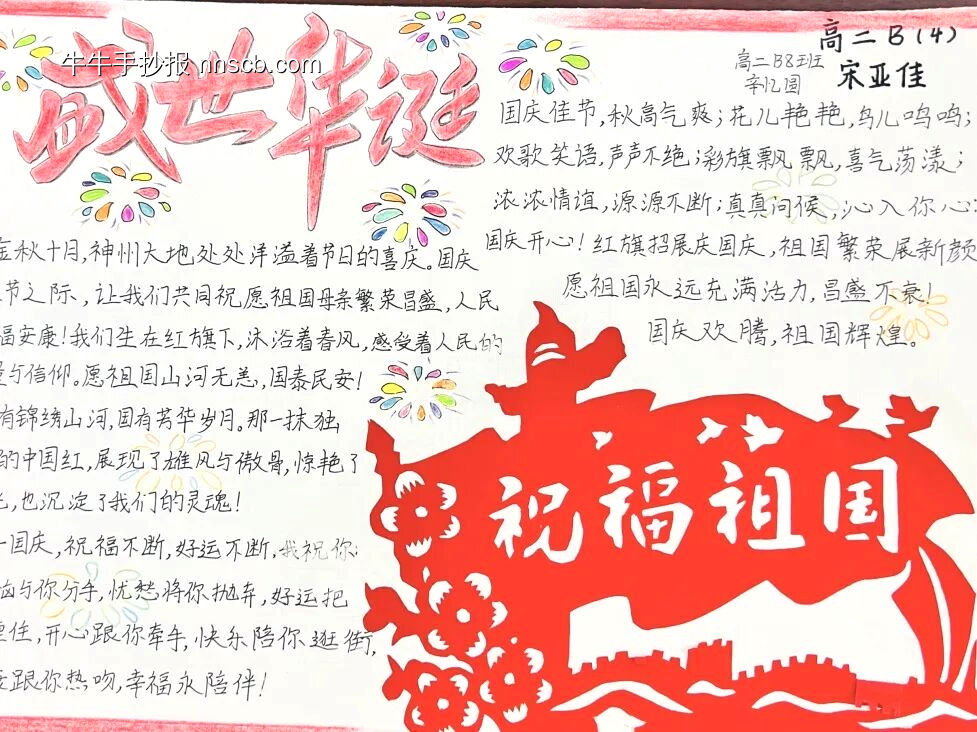 牛牛手抄报 nhscb.com
盛世华诞
高二B(4)
高二B8班
宋亚佳
辛忆圆
国庆佳节,秋高气爽;花儿艳艳,鸟儿呜呜;
欢歌笑语,声声不绝;彩旗飘飘,喜气荡漾;
浓浓情谊,源源不断;真真问候,沁入你心;
国庆开心!红旗招展庆国庆,祖国繁荣展新颜
愿祖国永远充满活力,昌盛不衰!
国庆欢腾,祖国辉煌。
金秋十月,神州大地处处洋溢着节日的喜庆。国庆
节之际,让我们共同祝愿祖国母亲繁荣昌盛,人民
福安康!我们生在红旗下,沐浴着春风,感受着人民的
与信仰。愿祖国山河无恙,国泰民安!
有锦绣山河,国有芳华岁月。那一抹独
的中国红,展现了雄风与傲骨,惊艳了
,也沉淀了我们的灵魂!
一国庆,祝福不断,好运不断,我祝你:
恼与你分手,忧愁将你抛弃,好运把
住,开心跟你牵手,快乐陪你逛街,
跟你热吻,幸福永陪伴!
祝福祖国